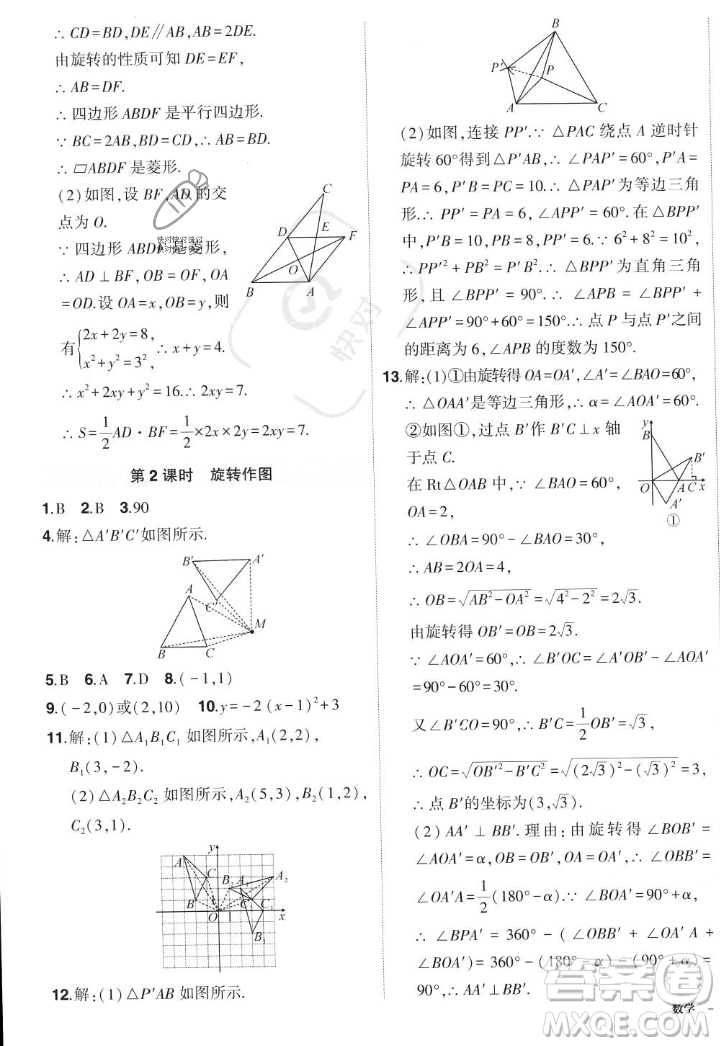 ∴ CD=BD,DE∥AB,AB=2DE.
由旋转的性质可知 DE=EF,
∴ AB=DF.
∴ 四边形 ABDF 是平行四边形.
∵ BC=2AB,BD=CD,∴ AB=BD.
∴ ▱ABDF 是菱形.
(2)如图,设 BF,AD 的交
点为 O.
∵ 四边形 ABDF 是菱形,
∴ AD⊥BF,OB=OF,OA
=OD.设 OA=x,OB=y,则
有{2x+2y=8, x²+y²=3², ∴ x+y=4.
∴ x²+2xy+y²=16.∴ 2xy=7.
∴ S=1/2 AD·BF=1/2×2x×2y=2xy=7.
C
D
E
F
O
B
A
第 2 课时 旋转作图
1.B 2.B 3.90
4.解:△A'B'C'如图所示.
B'
A'
A
C'
M
B
C
5.B 6.A 7.D 8.(-1,1)
9.(-2,0)或(2,10) 10.y=-2(x-1)²+3
11.解:(1)△A₁B₁C₁ 如图所示,A₁(2,2),
B₁(3,-2).
(2)△A₂B₂C₂ 如图所示,A₂(5,3),B₂(1,2),
C₂(3,1).
y
A
C
B₂
A₂
B
O
1
x
B₁
12.解:(1)△P'AB 如图所示.
B
P'
P
A
C
(2)如图,连接 PP'.∵ △PAC 绕点 A 逆时针
旋转 60°得到△P'AB,∴ ∠PAP'=60°,P'A=
PA=6,P'B=PC=10.∴ △PAP'为等边三角
形.∴ PP'=PA=6,∠P'PA=60°.在△BPP'
中,P'B=10,PB=8,PP'=6.∵ 6²+8²=10²,
∴ PP'²+PB²=P'B².∴ △BPP'为直角三角
形,且∠BPP'=90°.∴ ∠APB=∠BPP'+
∠APP'=90°+60°=150°.∴ 点 P 与点 P'之间
的距离为 6,∠APB 的度数为 150°.
13.解:(1)①由旋转得 OA=OA',∠A'=∠BAO=60°,
∴ △OAA'是等边三角形,∴ α=∠AOA'=60°.
②如图①,过点 B'作 B'C⊥x 轴
于点 C.
在 Rt△OAB 中,∠BAO=60°,
OA=2,
∴ ∠OBA=90°-∠BAO=30°,
∴ AB=2OA=4,
∴ OB=√(AB²-OA²)=√(4²-2²)=2√3.
y
B
B'
O
A
C
x
A'
①
由旋转得 OB'=OB=2√3.
∵ ∠AOA'=60°,∴ ∠B'OC=∠A'OB'-∠AOA'
=90°-60°=30°.
又∠B'CO=90°,∴ B'C=1/2 OB'=√3.
∴ OC=√(OB'²-B'C²)=√((2√3)²-(√3)²)=3,
∴ 点 B'的坐标为(3,√3).
(2)AA'⊥BB'.理由:由旋转得 ∠BOB'=
∠AOA'=α,OB=OB',OA=OA',∴ ∠OBB'=
∠OA'A=1/2(180°-α).∵ ∠BOA'=90°+α,
∴ ∠BPA'=360°-(∠OBB'+∠OA'A+
∠BOA')=360°-(180°-α+90°+α)=90°.
∴ AA'⊥BB'.
数学
快对
答案圈
MXQE.COM